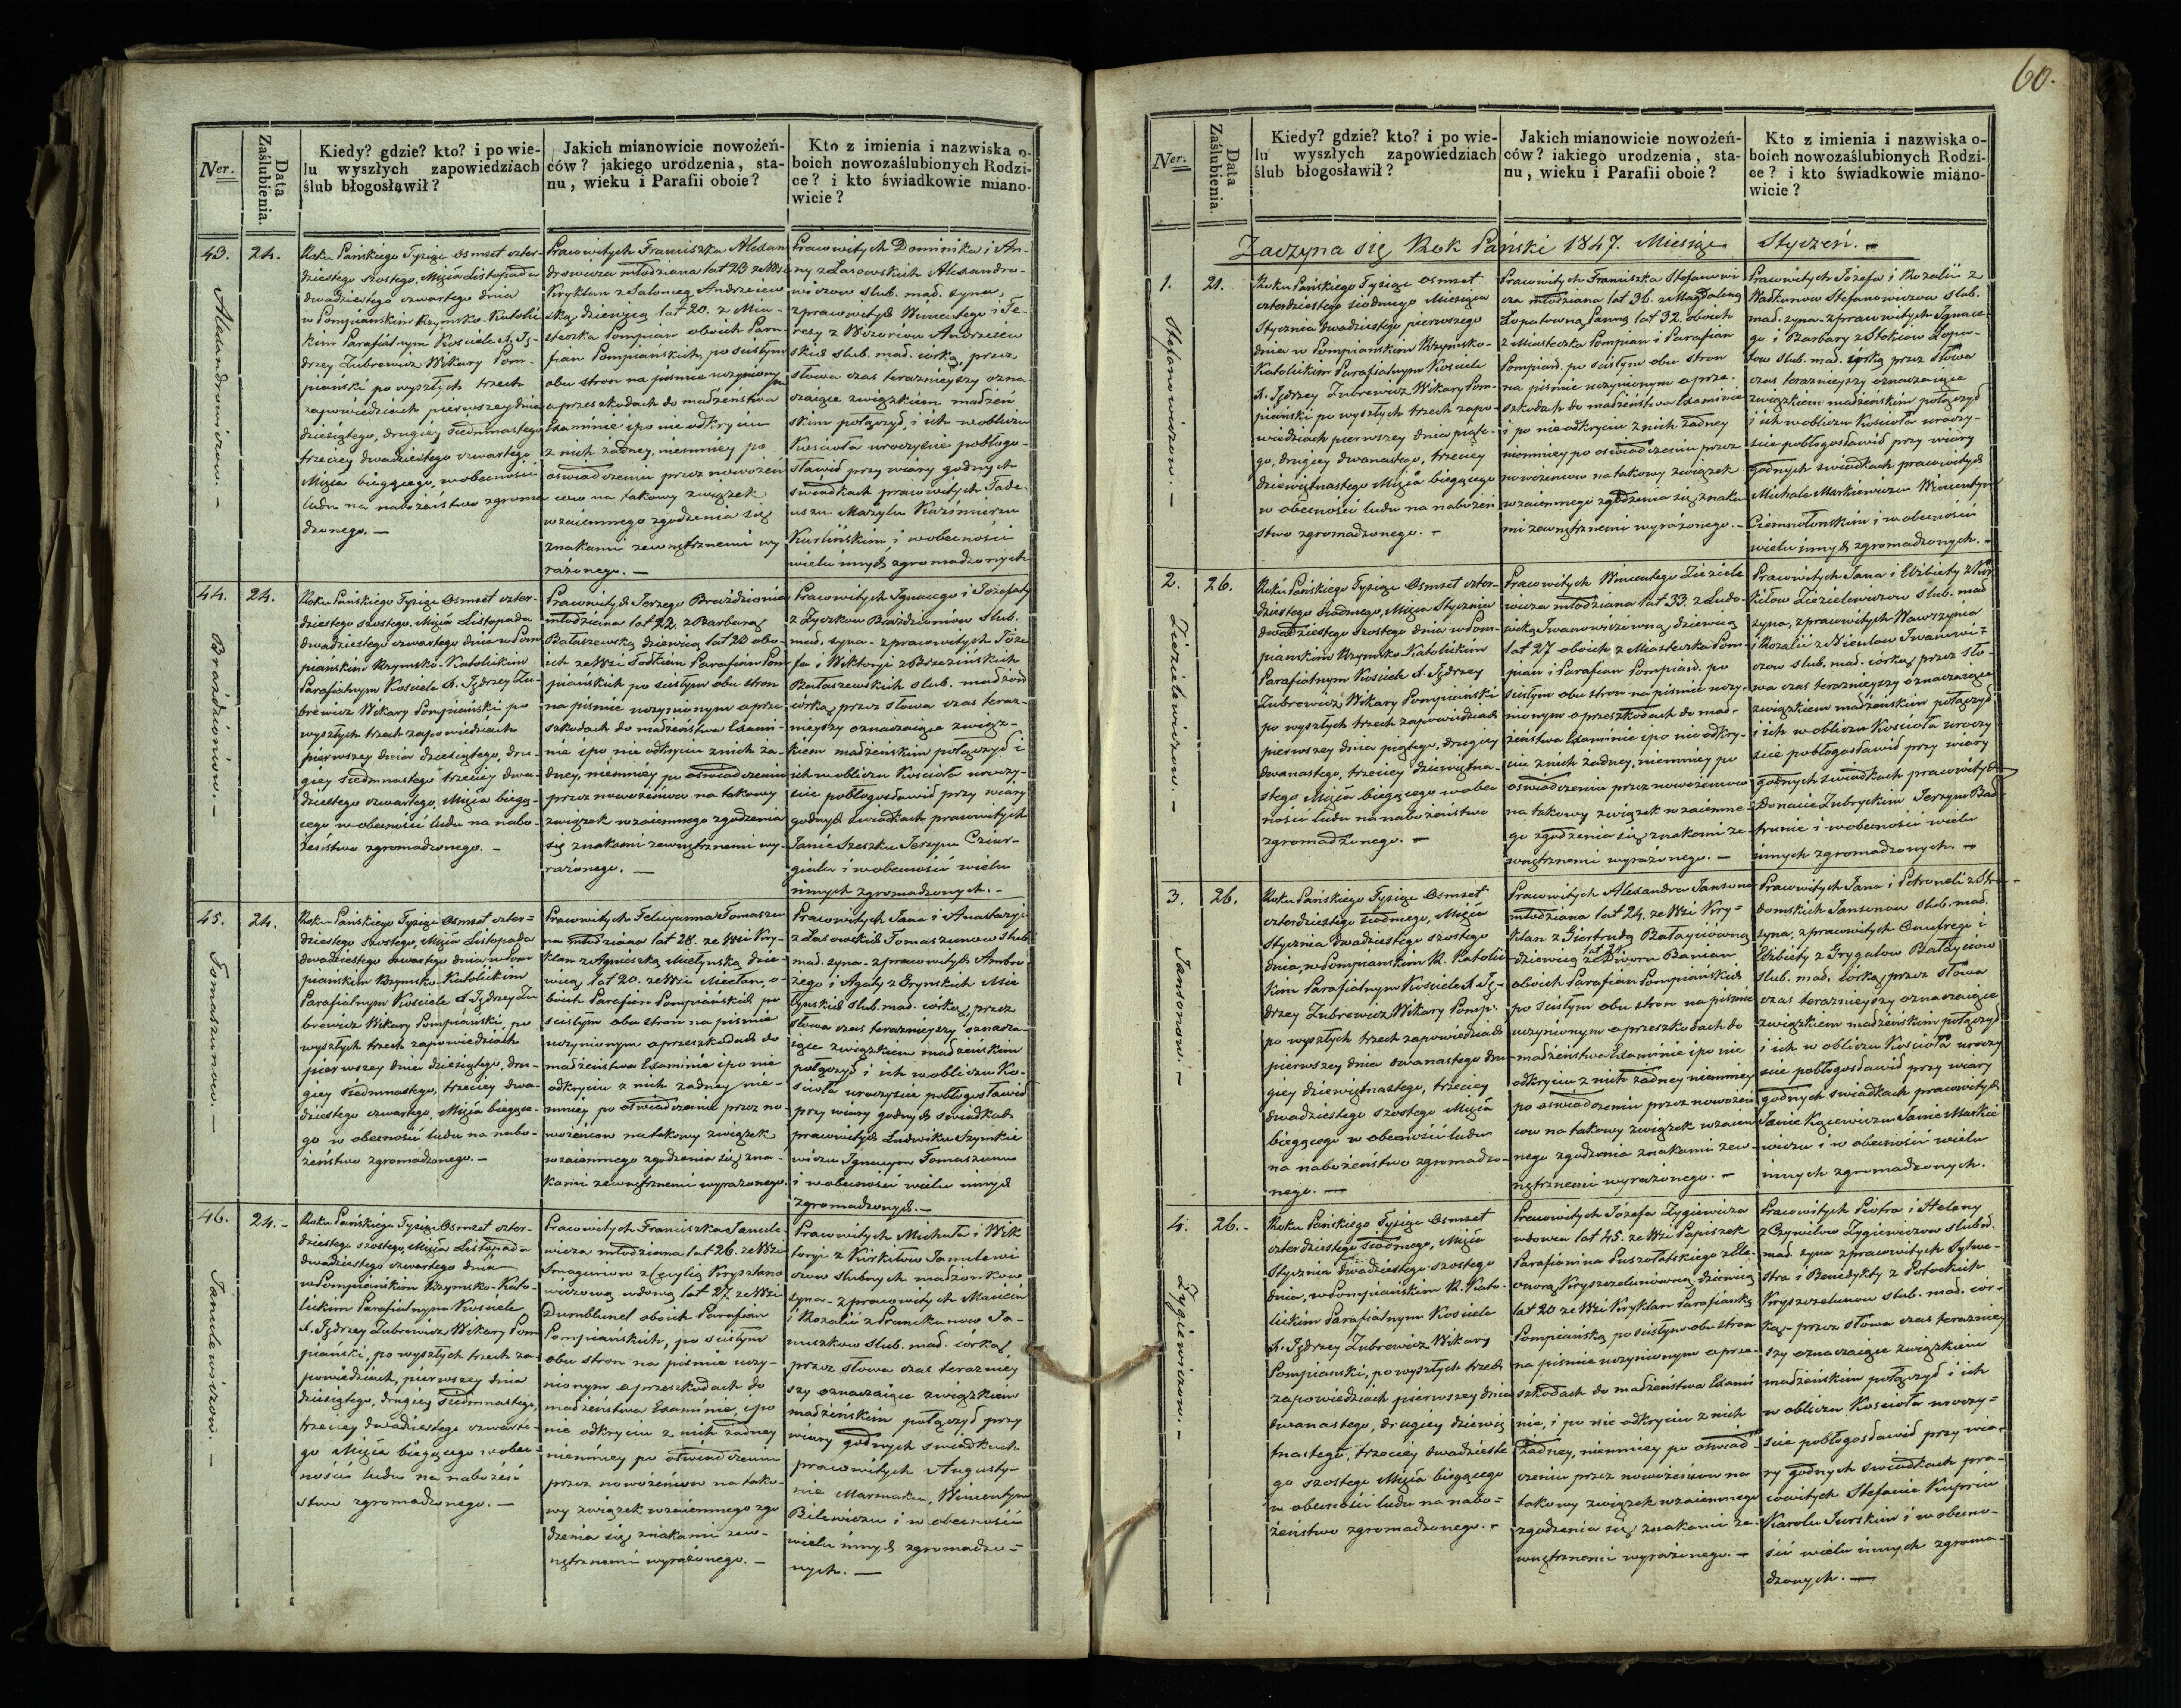 Ner.
Data Zaślubienia.
Kiedy? gdzie? kto? i po wie-
lu wyszłych zapowiedziach
ślub błogosławił?
Jakich mianowicie nowożeń-
ców? jakiego urodzenia, sta-
nu, wieku i Parafii oboie?
Kto z imienia i nazwiska o-
boich nowozaślubionych Rodzi-
ce? i kto świadkowie miano-
wicie?
43.
24.
Alexandrowiczow. –
Roku Pańskiego Tysiąc Osmset czter-
dziestego szostego, Mięsia Listopada
dwadziestego czwartego dnia
w Pompiańskim Rzymsko-Katolic
kim Parafialnym Kościele X. Ję-
drzey Zubrewicz Wikary Pom-
piański po wyszłych trzech
zapowiedziach pierwszey dnia
dziesiątego, drugiéy siedmnastego
trzeciey dwadziestego czwartego
Mięsia biegącego, w obecności
ludu na nabożeństwo zgroma
dzonego. –
Pracowitych Franciszka Alexan
drowicza młodziana lat 23 ze Wsi
Kryklan z Salomeą Andrzeiew
ską dziewicą lat 20. z Mia-
steczka Pompian oboich Para-
fian Pompiańskich, po scisłym
obu stron na piśmie uczyniony
o przeszkodach do małżeństwa
Examinie i po nie odkryciu
z nich żadney, niemniéy po
oświadczeniu przez nowożeń
cow na takowy związek
wzaiemnego zgodzenia się
znakami zewnętrznemi wy
rażonego. –
Pracowitych Dominika i An-
ny z Lasowskich Alexandro-
wiczow slub. mał. syna,
z pracowitych Wincentego i Te-
resy z Wizoriow Andrzeiew
skich slub. mał. córką, przez
słowa czas teraznieyszy ozna
czaiące związkiem małżeń
skim połączył, i ich w obliczu
Kościoła uroczyście pobłogo-
sławił przy wiary godnych
świadkach pracowitych Tade-
uszu Mazylu Kazimierzu
Karlińskim i w obecności
wielu innych zgromadzonych
44.
24.
Brażdzioniow. –
Roku Pańskiego Tysiąc Osmset czter-
dziestego szostego, Mięsia Listopada
dwadziestego czwartego dnia w Pom
piańskim Rzymsko-Katolickim
Parafialnym Kościele X. Jędrzey Zu-
brewicz Wikary Pompiański po
wyszłych trzech zapowiedziach
pierwszey dnia dziesiątego, dru-
giey siedmnastego trzeciey dwa-
dziestego czwartego, Mięsia biegą-
cego w obecności ludu na nabo-
żeństwo zgromadzonego. –
Pracowitych Jerzego Brażdzionia
młodziana lat 22. z Barbarą
Bałaszewską dziewicą lat 23 obo-
ich ze Wsi Sodkian Parafian Pom
piańskich po scisłym obu stron
na piśmie uczynionym o prze
szkodach do małżeństwa Exami-
nie i po nie odkryciu z nich ża-
dney, niemniéy po oświadczeniu
przez nowożeńcow na takowy
związek wzaiemnego zgodzenia
się znakami zewnętrznemi wy-
rażonego. –
Pracowitych Ignacego i Jozefaty
z Zyczkow Brażdzioniow slub.
mał. syna - z pracowitych Józe-
fa i Wiktoryi z Brzezińskich
Bałaszewskich slub. małżon
córką przez słowa czas teraz-
nieyszy oznaczaiące związ-
kiem małżeńskim połączył i
ich w obliczu Kościoła uroczy-
ście pobłogosławił przy wiary
godnych świadkach pracowitych
Janie Szeszku Jerzym Cziur-
gielu i w obecności wielu
innych zgromadzonych. –
45.
24.
Tomaszunow. –
Roku Pańskiego Tysiąc Osmset czter=
dziestego szostego, Mięsia Listopada
dwadziestego czwartego dnia w Pom
piańskim Rzymsko-Katolickim
Parafialnym Kościele X Jędrzey Zu
brewicz Wikary Pompiański, po
wyszłych trzech zapowiedziach
pierwszey dnia dziesiątego, dru-
giey siedmnastego, trzeciey dwa-
dziestego czwartego, Mięsia biegące-
go w obecności ludu na nabo-
żeństwo zgromadzonego. –
Pracowitych Felicyanna Tomaszu
na młodziana lat 28. ze Wsi Kry-
klan z Agnieszką Miełynską dzie-
wicą lat 20. ze Wsi Miecłan, o-
boich Parafian Pompiańskich po
scisłym obu stron na piśmie
uczynionym o przeszkodach do
małżeństwa Examinie i po nie
odkryciu z nich żadney nie-
mniéy po oświadczeniu przez no-
wożeńcow na takowy związek
wzaiemnego zgodzenia się zna-
kami zewnętrznemi wyrażonego.
Pracowitych Jana i Anastazyi
z Lasowskich Tomaszunow Slub.
mał. syna - z pracowitych Ambro-
żego i Agaty z Grynskich Mie
łynskich slub. mał. córką, przez
słowa czas teraznieyszy oznacza-
iące związkiem małżeńskim
połączył i ich w obliczu Ko-
ścioła uroczyście pobłogosławił
przy wiary godnych świadkach
pracowitych Ludwiku Szymkie
wiczu Ignacym Tomaszunu
i w obecności wielu innych
zgromadzonych. –
46.
24.-
Janulewiczow. –
Roku Pańskiego Tysiąc Osmset czter-
dziestego szostego, Mięsia Listopada
dwadziestego czwartego dnia
w Pompiańskim Rzymsko-Kato-
lickim Parafialnym Kościele
X. Jędrzey Zubrewicz Wikary Pom
piański, po wyszłych trzech za-
powiedziach, pierwszey dnia
dziesiątego, drugiéy siedmnastego,
trzeciey dwadziestego czwarte-
go Mięsia biegącego w obec-
ności ludu na nabożeń
stwo zgromadzonego. –
Pracowitych Franciszka Janule-
wicza młodziana lat 26. ze Wsi
Smaguriow z Cecylią Krysztano
wiczową wdową lat 27. ze Wsi
Dumbluncl oboich Parafian
Pompiańskich, po scisłym
obu stron na piśmie uczy-
nionym o przeszkodach do
małżeństwa Examinie, i po
nie odkryciu z nich żadney
niemniéy po oświadczeniu
przez nowożeńcow na tako-
wy związek wzaiemnego zgo
dzenia się znakami zew-
nętrznemi wyrażonego. –
Pracowitych Michała i Wik
toryi z Kirkiłow Janulewi
czow slubnych małżonkow
syna - z pracowitych Macieia
i Rozalii z Prunckunow Ja-
nuszkow slub. mał. córką,
przez słowa czas terazniey
szy oznaczaiące związkiem
małżeńskim połączył przy
wiary godnych świadkach
pracowitych Augusty-
nie Marmaku, Wincentym
Bilewiczu i w obecności
wielu innych zgromadzo=
nych. –
60.
Ner.
Data Zaślubienia.
Kiedy? gdzie? kto? i po wie-
lu wyszłych zapowiedziach
ślub błogosławił?
Jakich mianowicie nowożeń-
ców? iakiego urodzenia, sta-
nu, wieku i Parafii oboie?
Kto z imienia i nazwiska o-
boich nowozaślubionych Rodzi-
ce? i kto świadkowie miano-
wicie?
Zaczyna się Rok Pański 1847. Miesiąc Styczeń. –
1.
21.
Stefanowiczow. –
Roku Pańskiego Tysiąc Osmset
czterdziestego siódmego Miesiąca
Stycznia dwadziestego pierwszego
dnia w Pompiańskim Rzymsko-
Katolickim Parafialnym Kościele
X. Jędrzey Zubrewicz Wikary Pom-
piański po wyszłych trzech zapo-
wiedziach pierwszey dnia piąte-
go, drugiey dwanastego, trzeciey
dziewiętnastego Mięsia biegącego
w obecności ludu na nabożeń
stwo zgromadzonego. –
Pracowitych Franciszka Stefanowi
cza młodziana lat 36. z Magdaleną
Łopatowną Panną lat 32. oboich
z Miasteczka Pompian i Parafian
Pompiań. po scisłym obu stron
na piśmie uczynionym o prze-
szkodach do małżeństwa Examinie
i po nie odkryciu z nich żadney
niemniey po oświadczeniu przez
nowożeńcow na takowy związek
wzaiemnego zgodzenia się znaka
mi zewnętrznemi wyrażonego. –
Pracowitych Józefa i Rozalii z
Wadkunow Stefanowiczow slub.
mał. syna - z pracowitych Ignace-
go i Barbary z Stokiow Łopa-
tow slub. mał. córką przez słowa
czas teraznieyszy oznaczaiące
związkiem małżeńskim połączył
i ich w obliczu Kościoła uroczy-
ście pobłogosławił przy wiary
godnych świadkach pracowitych
Michale Markiewiczu Wincentym
Ciemnołonskim i w obecności
wielu innych zgromadzonych. –
2.
26.
Zieziełewiczow. –
Roku Pańskiego Tysiąc Osmset czter-
dziestego siodmego, Mięsia Stycznia
dwadziestego szostego dnia w Pom-
piańskim Rzymsko-Katolickim
Parafialnym Kościele X Jędrzey
Zubrewicz Wikary Pompiański
po wyszłych trzech zapowiedziach
pierwszey dnia piątego, drugiey
dwanastego, trzeciey dziewiętna-
stego Mięsia biegącego w obec
ności ludu na nabożeństwo
zgromadzonego. –
Pracowitych Wincentego Zieziele
wicza młodziana lat 33. z Ludo-
wiką Iwanowiczowną dziewicą
lat 27 oboich z Miasteczka Pom-
pian i Parafian Pompiań. po
scisłym obu stron na piśmie uczy-
nionym o przeszkodach do mał-
żeństwa Examinie i po nie odkry-
ciu z nich żadney, niemniéy po
oświadczeniu przez nowożeńcow
na takowy związek wzaiemne-
go zgodzenia się znakami ze-
wnętrznemi wyrażonego. –
Pracowitych Jana i Elżbiety z Kir
kiłow Zieziełewiczow slub. mał
syna, z pracowitych Wawrzyńca
i Rozalii z Nieulow Iwanowi=
czow slub. mał. córką przez sło-
wa czas teraznieyszy oznaczaiące
związkiem małżeńskim połączył
i ich w obliczu Kościoła uroczy
ście pobłogosławił przy wiary
godnych świadkach pracowitych
Donacie Zubryckim Jerzym Bad-
trunie i w obecności wielu
innych zgromadzonych. –
3.
26.
Jansonow. –
Roku Pańskiego Tysiąc Osmset
czterdziestego siódmego, Mięsia
Stycznia dwadziestego szostego
dnia, w Pompiańskim R. Katolic
kim Parafialnym Kościele X Ję-
drzey Zubrewicz Wikary Pomp:
po wyszłych trzech zapowiedziach
pierwszey dnia dwanastego dru
giey dziewiętnastego, trzeciey
dwadziestego szostego Mięsia
biegącego w obecności ludu
na nabożeństwo zgromadzo-
nego. –
Pracowitych Alexandra Jansona
młodziana lat 24. ze Wsi Kry=
klan z Giertrudą Bałaycówną
lat 24
dziewicą ze Dworu Banian
oboich Parafian Pompiańskich
po scisłym obu stron na piśmie
uczynionym o przeszkodach do
małżeństwa Examinie i po nie
odkryciu z nich żadney niemniey
po oświadczeniu przez nowożeń
cow na takowy związek wzaiem
nego zgodzenia znakami zew-
nętrznemi wyrażonego. –
Pracowitych Jana i Petroneli z Stra-
domskich Jansonow slub. mał.
syna, z pracowitych Onufrego i
Elżbiety z Grygałow Bałaycow
slub. mał. córką, przez słowa
czas teraznieyszy oznaczaiące
związkiem małżeńskim połączył
i ich w obliczu Kościoła uroczy
ście pobłogosławił przy wiary
godnych świadkach pracowitych
Janie Kaiewiczu Janie Markie
wiczu i w obecności wielu
innych zgromadzonych.
4.
26.-
Zygiewiczow. –
Roku Pańskiego Tysiąc Osmset
czterdziestego siódmego, Mięsia
Stycznia dwadziestego szostego
dnia, w Pompiańskim R. Kato-
lickim Parafialnym Kościele
X. Jędrzey Zubrewicz Wikary
Pompiański, po wyszłych trzech
zapowiedziach pierwszey dnia
dwanastego, drugiey dziewię
tnastego, trzeciey dwadzieste
go szostego Mięsia biegącego
w obecności ludu na nabo=
żeństwo zgromadzonego. –
Pracowitych Józefa Zygiewicza
wdowca lat 45. ze Wsi Papiszek
Parafianina Puszołatskiego z Ele-
onorą Kryszczelunowną dziewicą
lat 20 ze Wsi Kryklan Parafianką
Pompiańską po scisłym obu stron
na piśmie uczynionym o prze-
szkodach do małżeństwa Exami
nie, i po nie odkryciu z nich
żadney, niemniey po oświad-
czeniu przez nowożeńcow na
takowy związek wzaiemnego
zgodzenia się znakami ze-
wnętrznemi wyrażonego. –
Pracowitych Piotra i Heleny
z Czynielow Zygiewiczow slubn.
mał. syna z pracowitych Sylwe-
stra i Benedykty z Potockich
Kryszczelunow slub. mał. cór-
ką - przez słowa czas terazniey
szy oznaczaiące związkiem
małżeńskim połączył i ich
w obliczu Kościoła uroczy=
ście pobłogosławił przy wia-
ry godnych świadkach pra-
cowitych Stefanie Kupriu
Karolu Jurskim i w obecno-
ści wielu innych zgroma-
dzonych. –